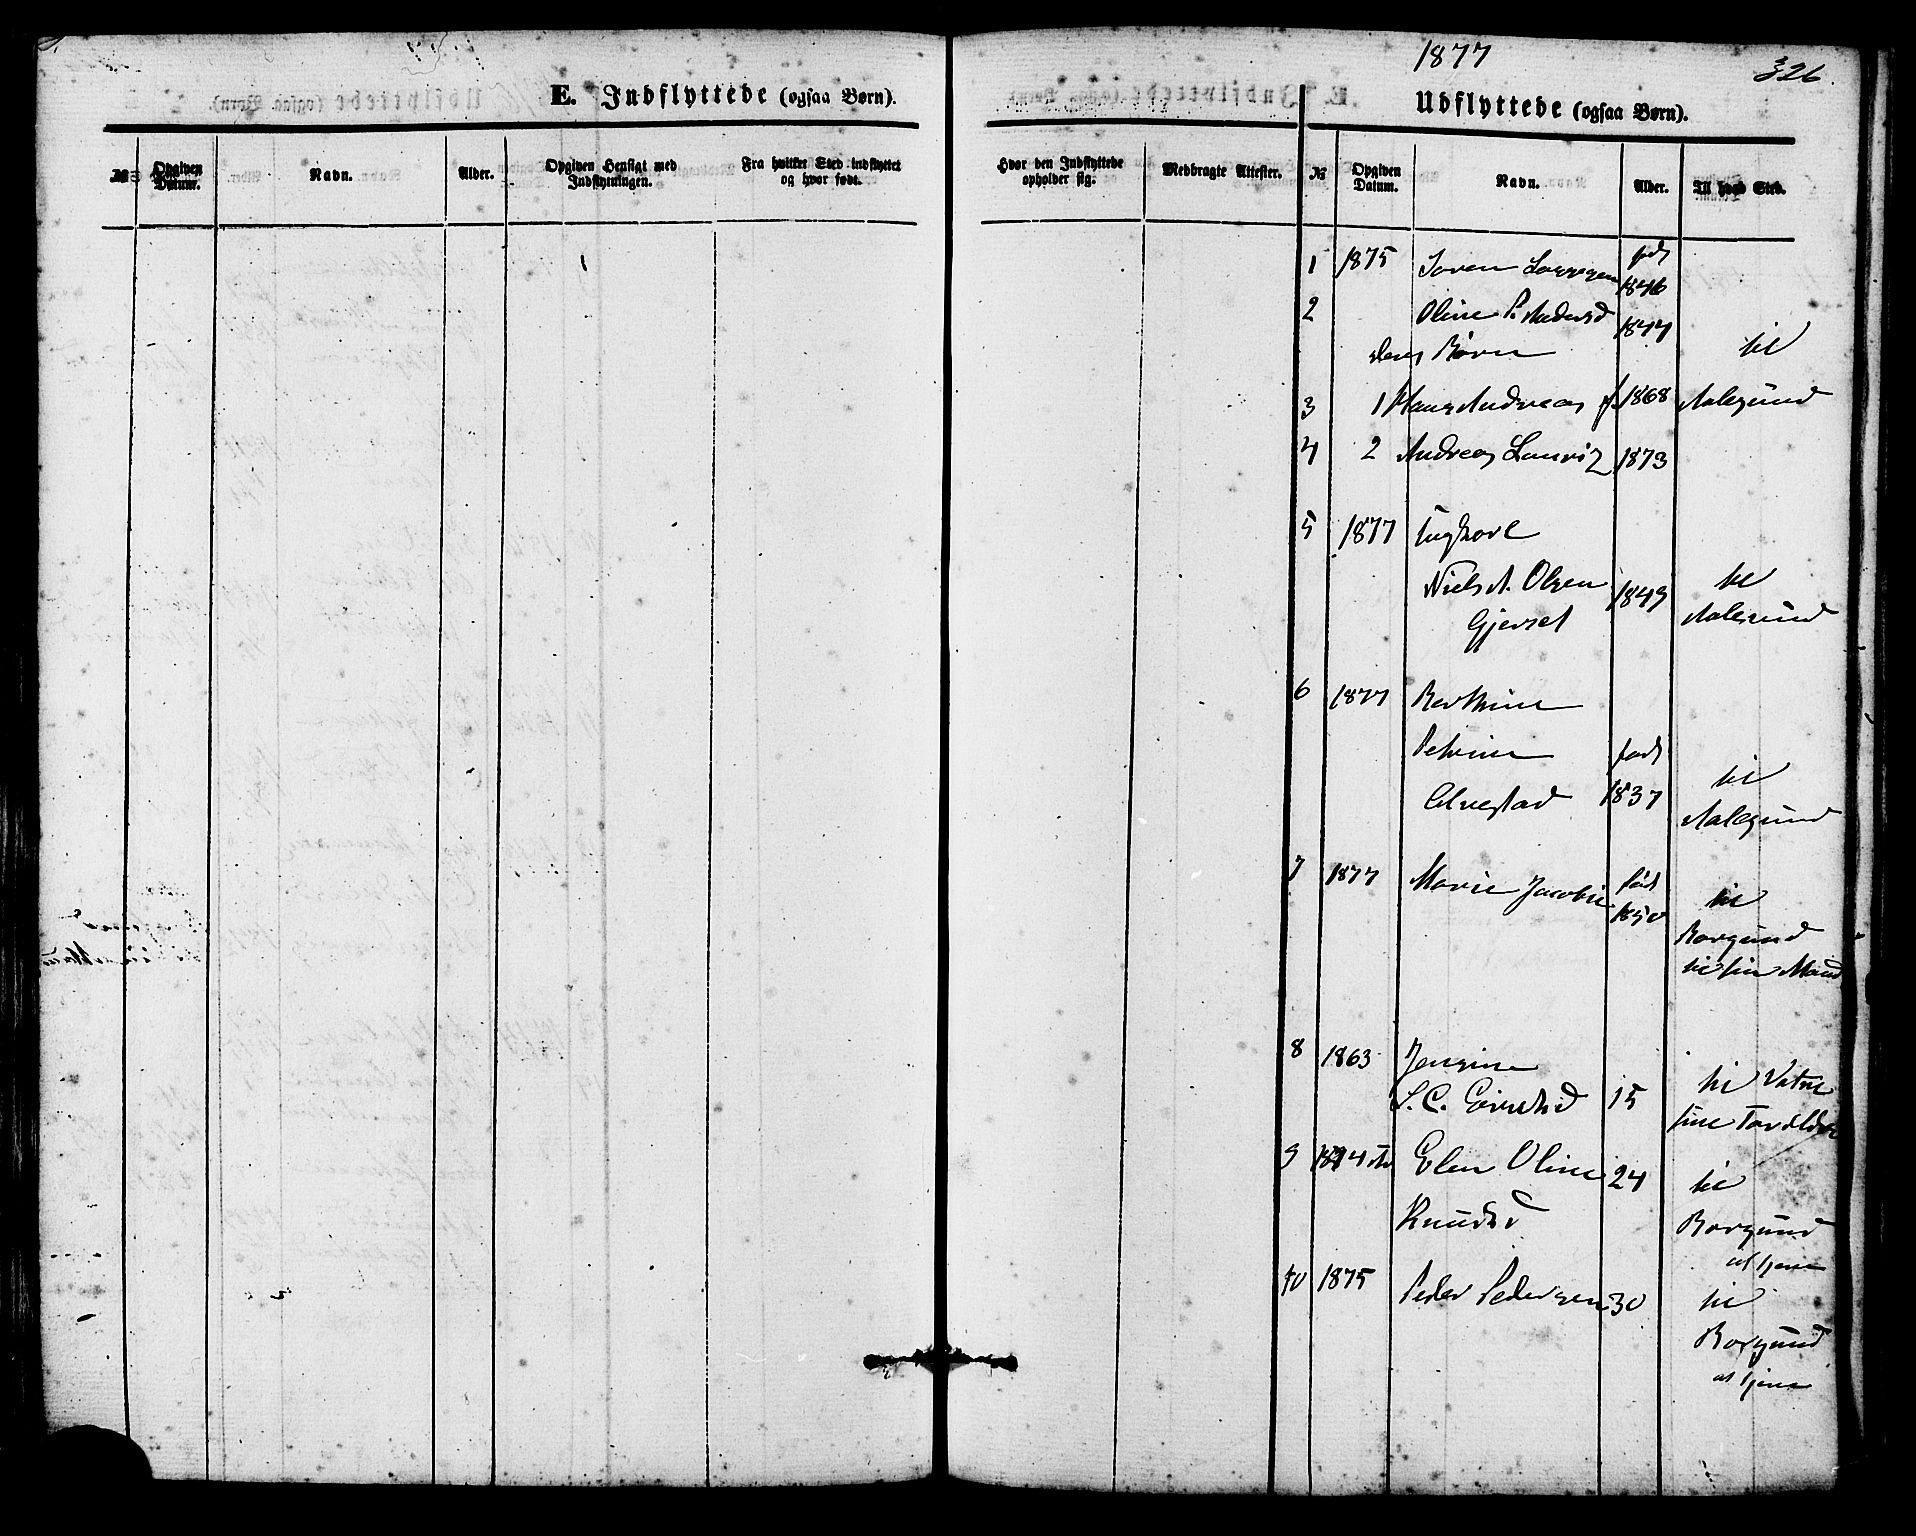 1877
326.
E. Indflyttede (ogsaa Børn).
№
Opgiven Datum.
Navn.
Alder.
Opgiven Hensigt med Indflytningen.
Fra hvilket Sted indflyttet og hvor født.
Hvor den Indflyttede opholder sig.
Medbragte Attester.
Udflyttede (ogsaa Børn).
№
Opgiven Datum.
Navn.
Alder.
Til hvad Sted.
1 1875 Søren fød
1846
2 Oline P. Andersd 1844
deres Børn til
3 1 Hans Andreas f. 1868 Aalesund
4 2 Andreas Lauriz 1873
5 1877 Ungkarl
Niels A. Olsen 1849 til
Gjerset Aalesund
6 1877 Berthine
Petrine fød
1837 til
Aalesund
7 1877 Marie Jacobie fød
1850 til
Borgund
til sin Mand
8 1863 Jensine
S. C. 15 til Vatne
sine Forældre
9 Elen Oline 24 til
Knudsd Borgund
at tjene
10 1875 Peder Pedersen 30 til
Borgund
at tjene